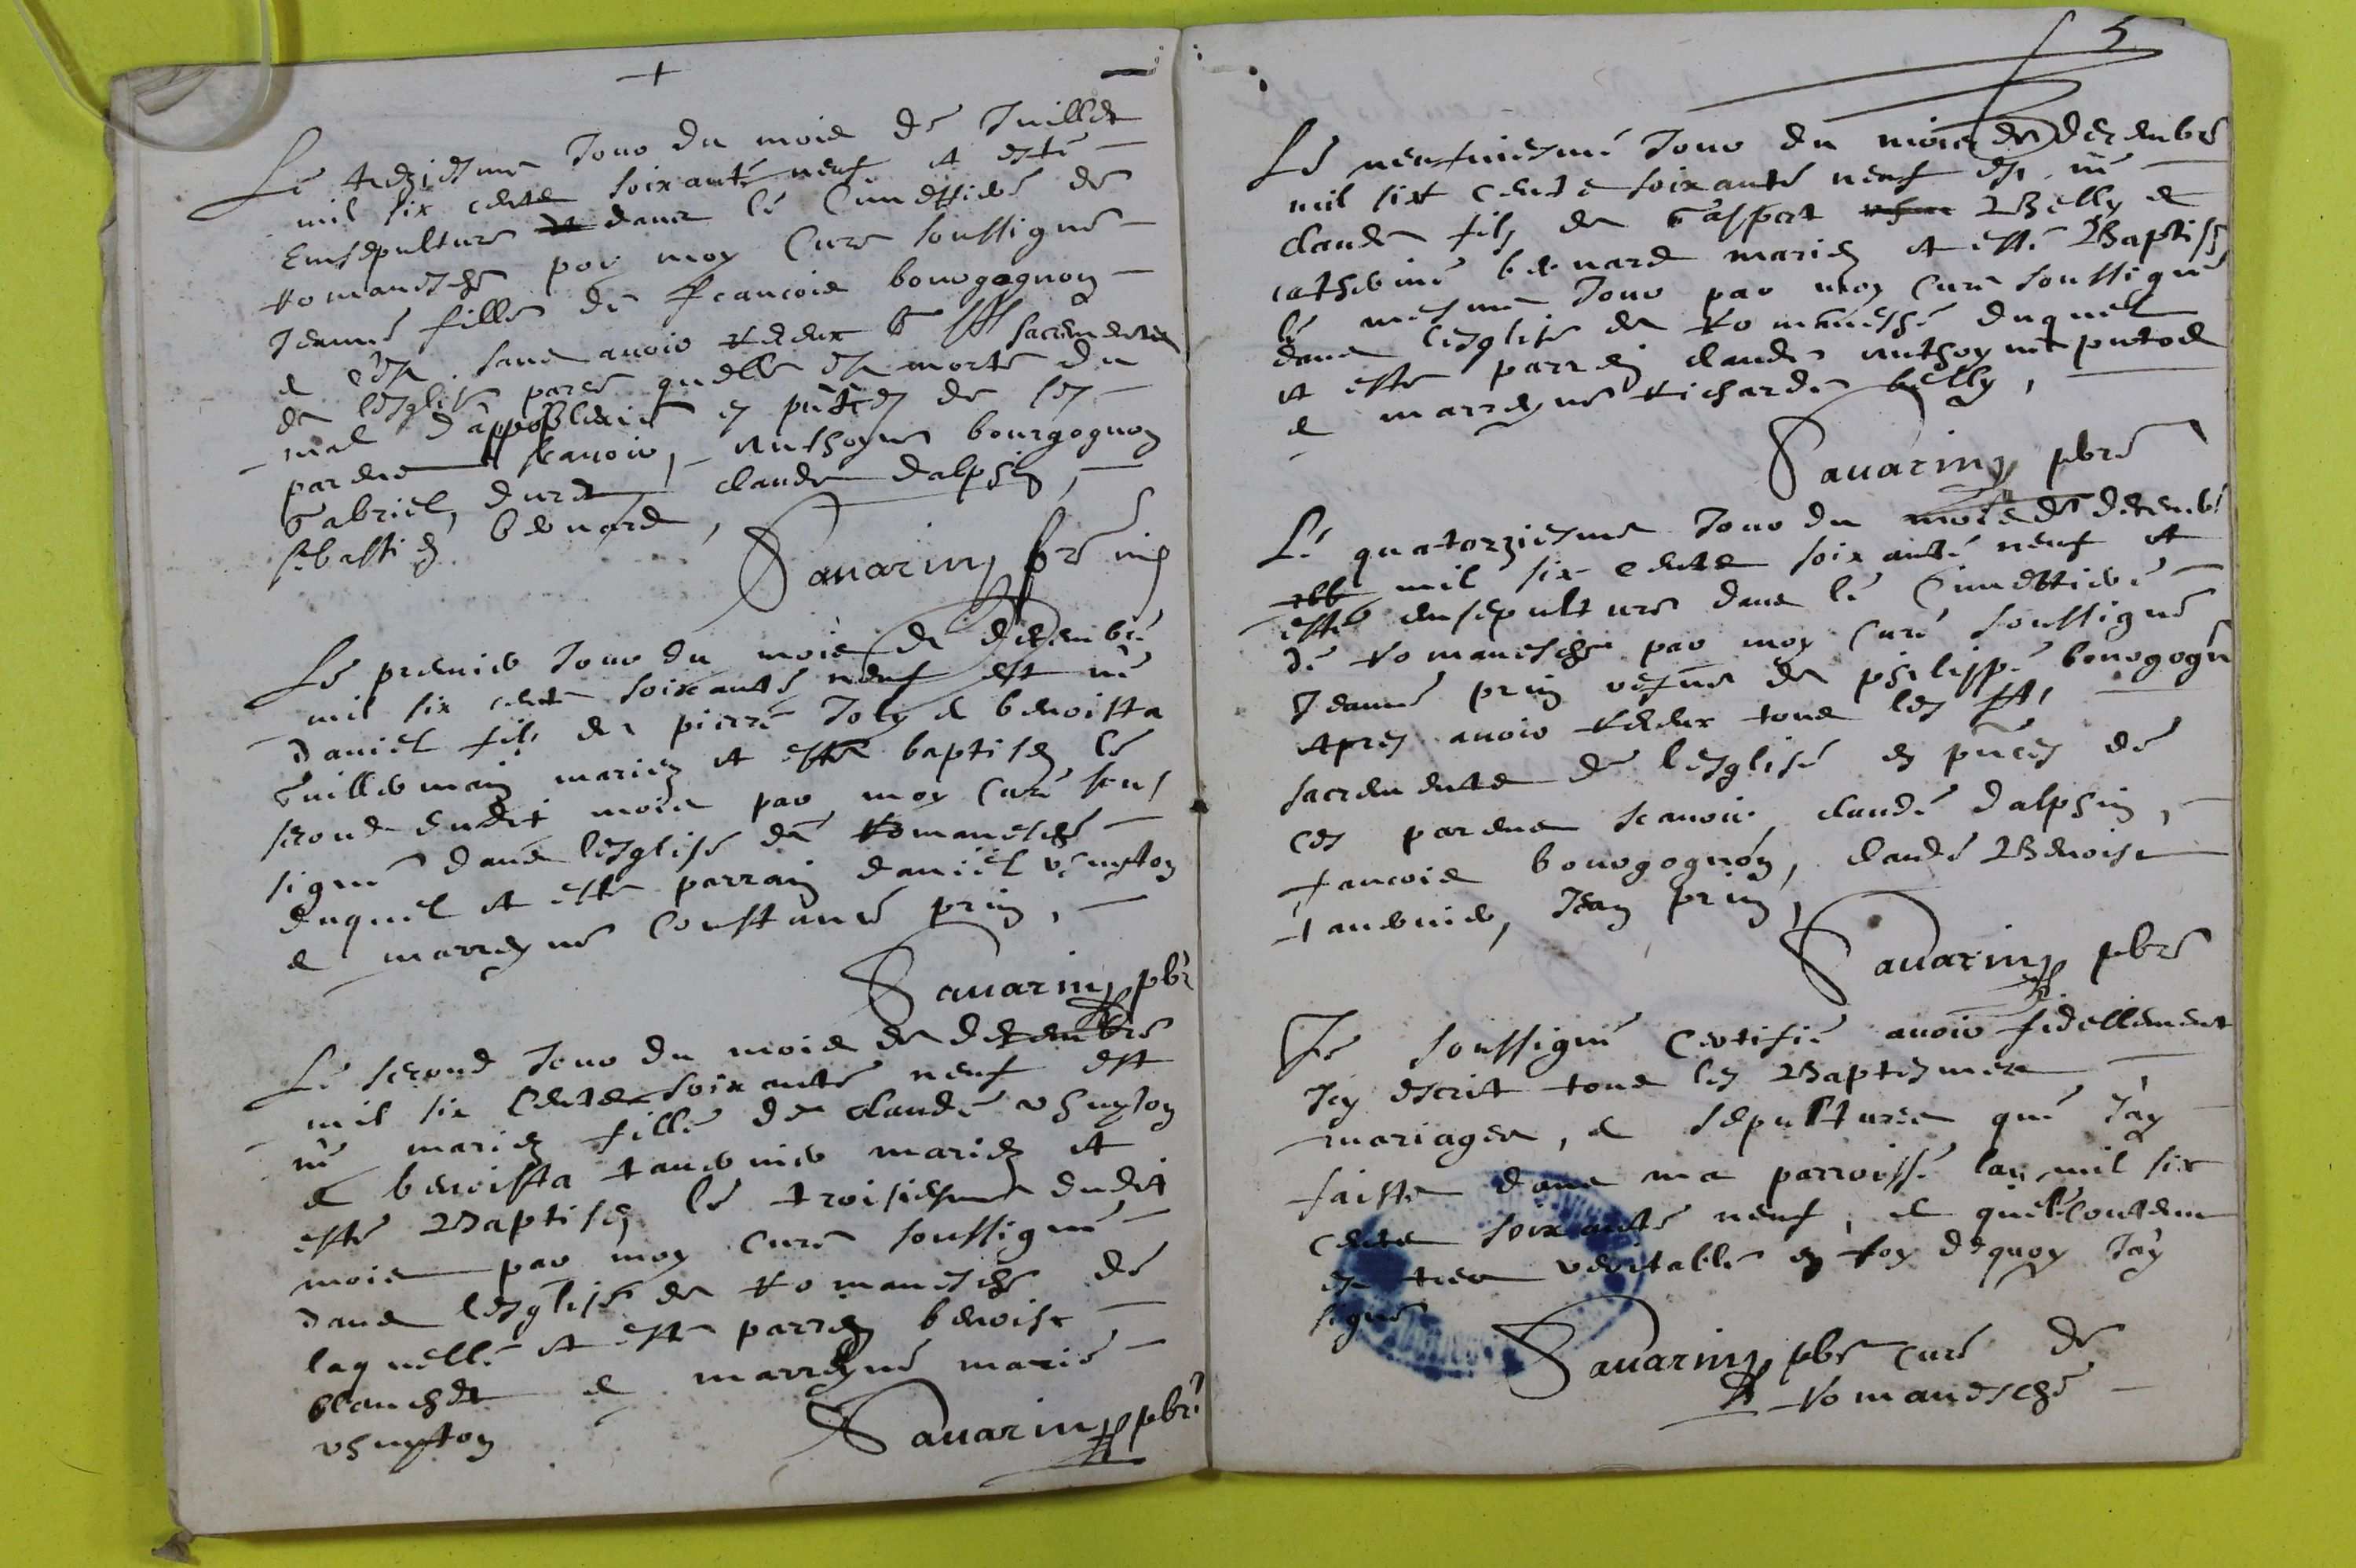 Le treziesme Jour du mois de Juillet
mil six cents soixante neuf at esté
Ensepulturé dans le Cimettiere de
Romanesche par moy Curé soussigné
Jeanne fille de francois bourgognon
sans avoir receux sacrements
de lesglise parce quelle est morte du
mal d'appoplexie en pñces de ses
parens scavoir, Anthoyne bourgognon
Gabriel, duret, claude dalphin,
sebastien benard,
Savarin pbre
Le premier Jour du mois de decembre
mil six cents soixante neuf est né
daniel fils de pierre Joly e benoista
Guillermain mariez at esté baptisez le
second dudit mois par moy Curé sous
signé dans lesglise de Romanesche
duquel at esté parrain daniel
e marreyne Constance prin,
Savarin pbr
Le second Jour du mois de decembre
mil six Cents soixante neuf est
né fille de claude
e benoista tavernier mariez at
esté Baptisez le troisiesme dudit
mois par moy Curé soussigné
dans lesglise de Romanesche de
laquelle at esté parren benoist
blanchet e marreyne marie
Savarin pbr
5
Le neufviesme Jour du mois de decembre
mil six Cents soixante neuf est né
claude fils de Gaspart Belly e
catherine benard mariez at esté Baptisé
le mesme Jour par moy Curé soussigné
dans lesglise de Romanesche duquel
at esté parren claude Anthoyne
e marreyne Richarde belly,
Savarin pbre
Le quatorziesme Jour du mois de decemb
mil six cents soixante neuf at
esté ensepulturé dans le Cimettiere
de Romanesche par moy Curé soussigné
Jeanne prin vefve de philippe bourgogn
Apres avoir receux tous les sts
sacrements de lesglise en pñces de
ces parens scavoir, claude dalphin,
francois bourgognon, claude Benoist
tavernier, Jean prin,
Savarin pbre
Je soussigné Certifie avoir fidellement
Icy escrit tous les Baptesmes
mariages, e sepultures que Jay
faiste dans ma parroisse lan mil six
Cents soixante neuf, e que le contenu
est tres veritable en foy dequoy Jay
signé
Savarin pbre curé de
Romanesche